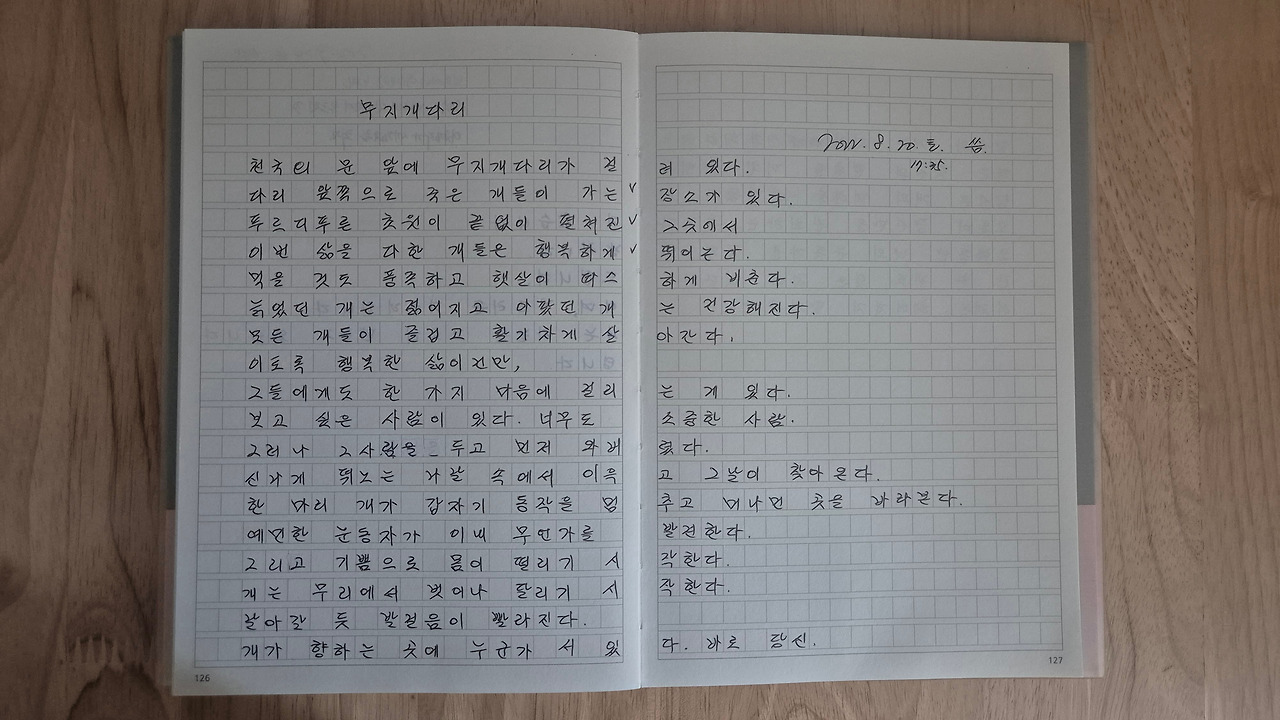 무지개다리
2022. 8. 20. 토. 씀.
17:35.
천국의 문 앞에 무지개다리가 걸려 있다.
다리 앞쪽으로 죽은 개들이 가는 ∨ 장소가 있다.
푸르디푸른 초원이 끝없이 펼쳐진 ∨ 그곳에서
이번 삶을 다한 개들은 행복하게 ∨ 뛰어논다.
먹을 것도 풍족하고 햇살이 따스하게 비춘다.
늙었던 개는 젊어지고 아팠던 개는 건강해진다.
모든 개들이 즐겁고 활기차게 살아간다.
이토록 행복한 삶이건만,
그들에게도 한 가지 마음에 걸리는 게 있다.
보고 싶은 사람이 있다. 너무도 소중한 사람.
그러나 그 사람을 두고 먼저 와버렸다.
신나게 뛰노는 나날 속에서 이윽고 그날이 찾아온다.
한 마리 개가 갑자기 동작을 멈추고 머나먼 곳을 바라본다.
예민한 눈동자가 이내 무언가를 발견한다.
그리고 기쁨으로 몸이 떨리기 시작한다.
개는 무리에서 벗어나 달리기 시작한다.
날아갈 듯 발걸음이 빨라진다.
개가 향하는 곳에 누군가 서 있다. 바로 당신.
126
127